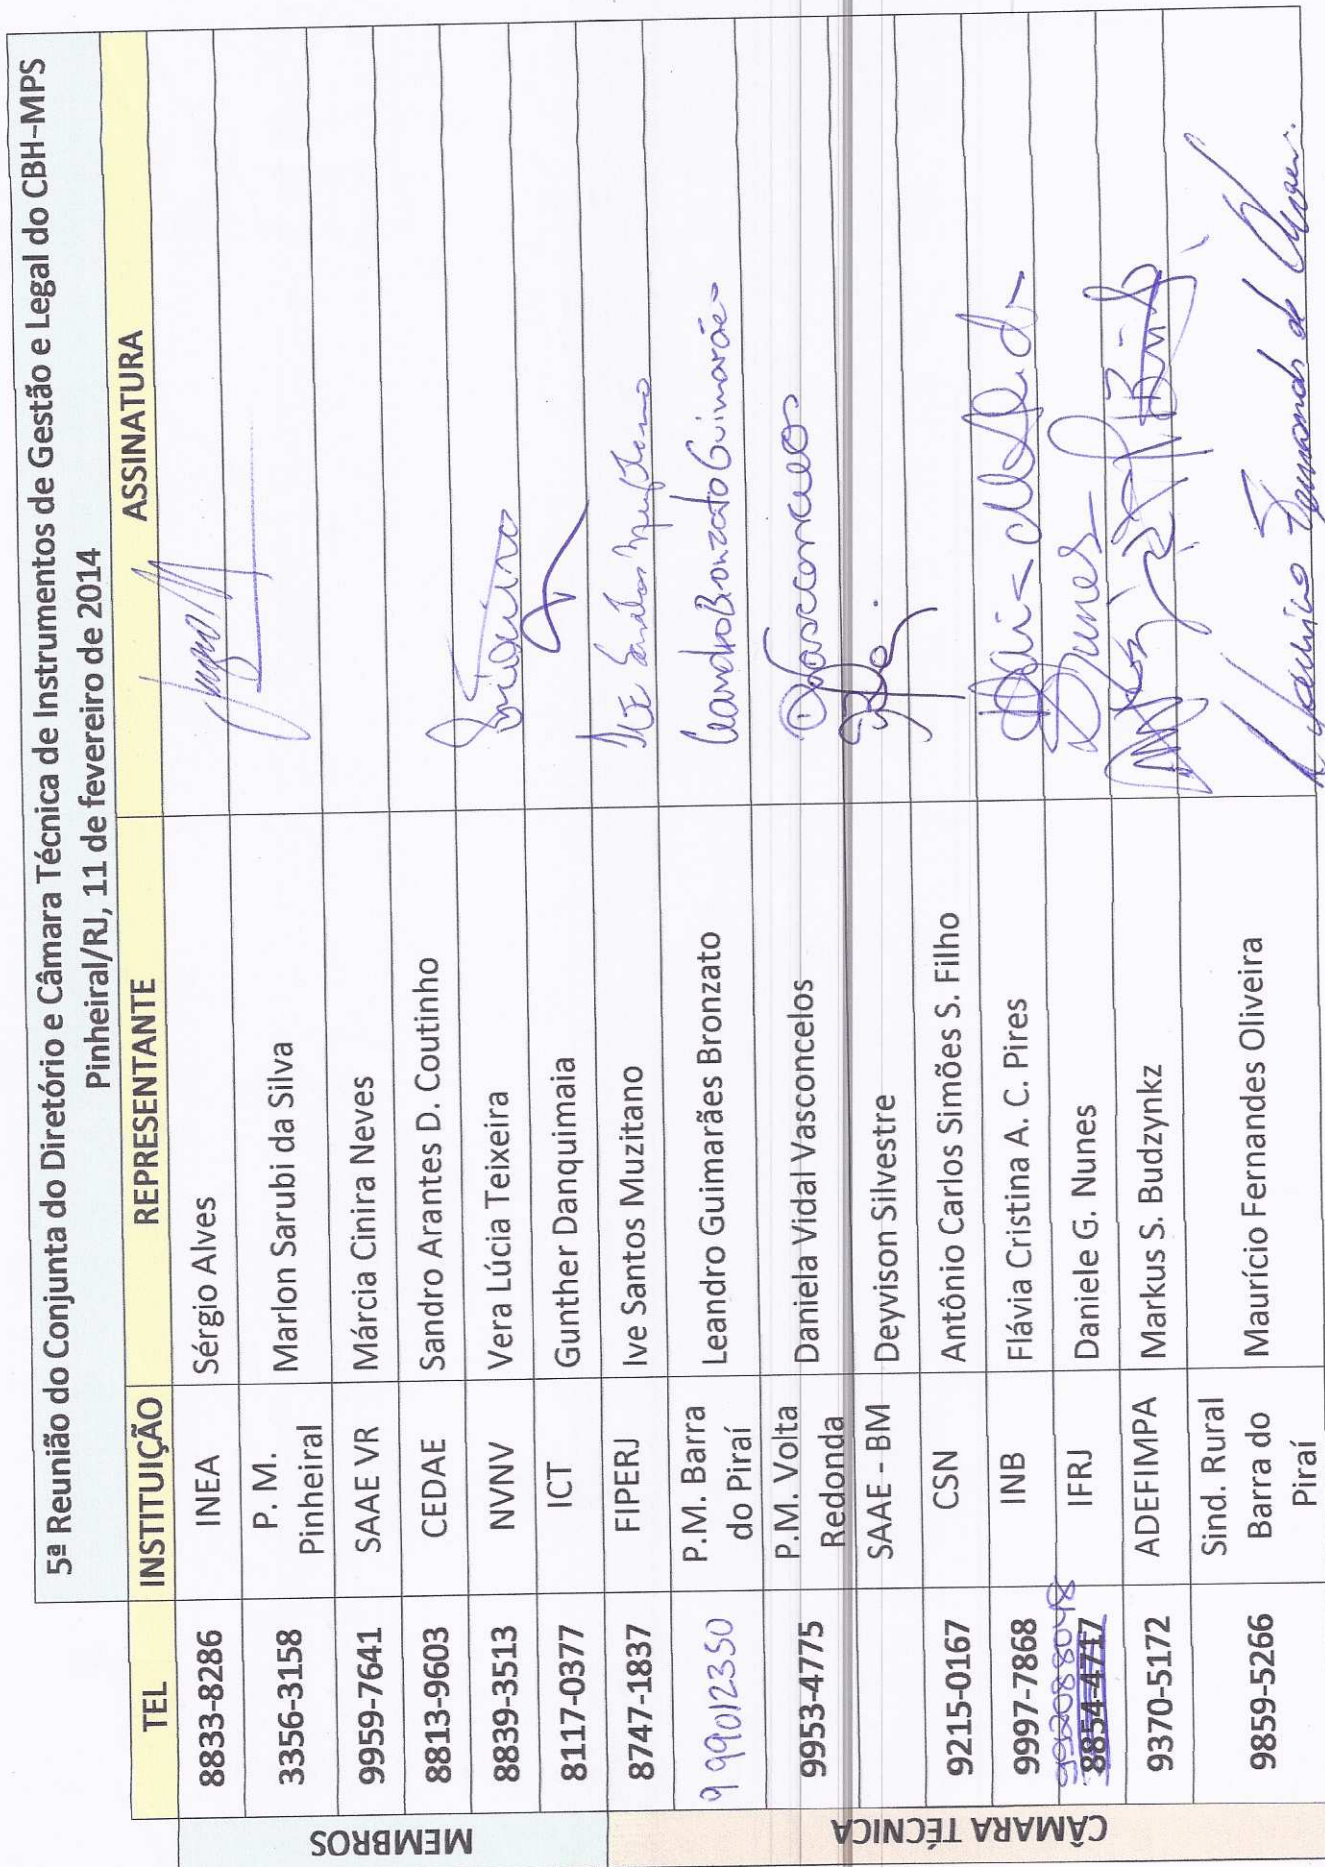 5ª Reunião do Conjunta do Diretório e Câmara Técnica de Instrumentos de Gestão e Legal do CBH-MPS
Pinheiral/RJ, 11 de fevereiro de 2014
TEL INSTITUIÇÃO REPRESENTANTE ASSINATURA
MEMBROS
8833-8286 INEA Sérgio Alves
3356-3158 P. M. Pinheiral Marlon Sarubi da Silva
9959-7641 SAAE VR Márcia Cinira Neves
8813-9603 CEDAE Sandro Arantes D. Coutinho
8839-3513 NVNV Vera Lúcia Teixeira
8117-0377 ICT Gunther Danquimaia
CÂMARA TÉCNICA
8747-1837 FIPERJ Ive Santos Muzitano
9 99012350 P.M. Barra do Piraí Leandro Guimarães Bronzato Leandro Bronzato Guimarães
9953-4775 P.M. Volta Redonda Daniela Vidal Vasconcelos DVasconcelos
SAAE - BM Deyvison Silvestre
9215-0167 CSN Antônio Carlos Simões S. Filho
9997-7868 INB Flávia Cristina A. C. Pires
992088048
8854-4717 IFRJ Daniele G. Nunes DNunes
9370-5172 ADEFIMPA Markus S. Budzynkz
9859-5266 Sind. Rural Barra do Piraí Maurício Fernandes Oliveira Maurício Fernandes de Oliveira